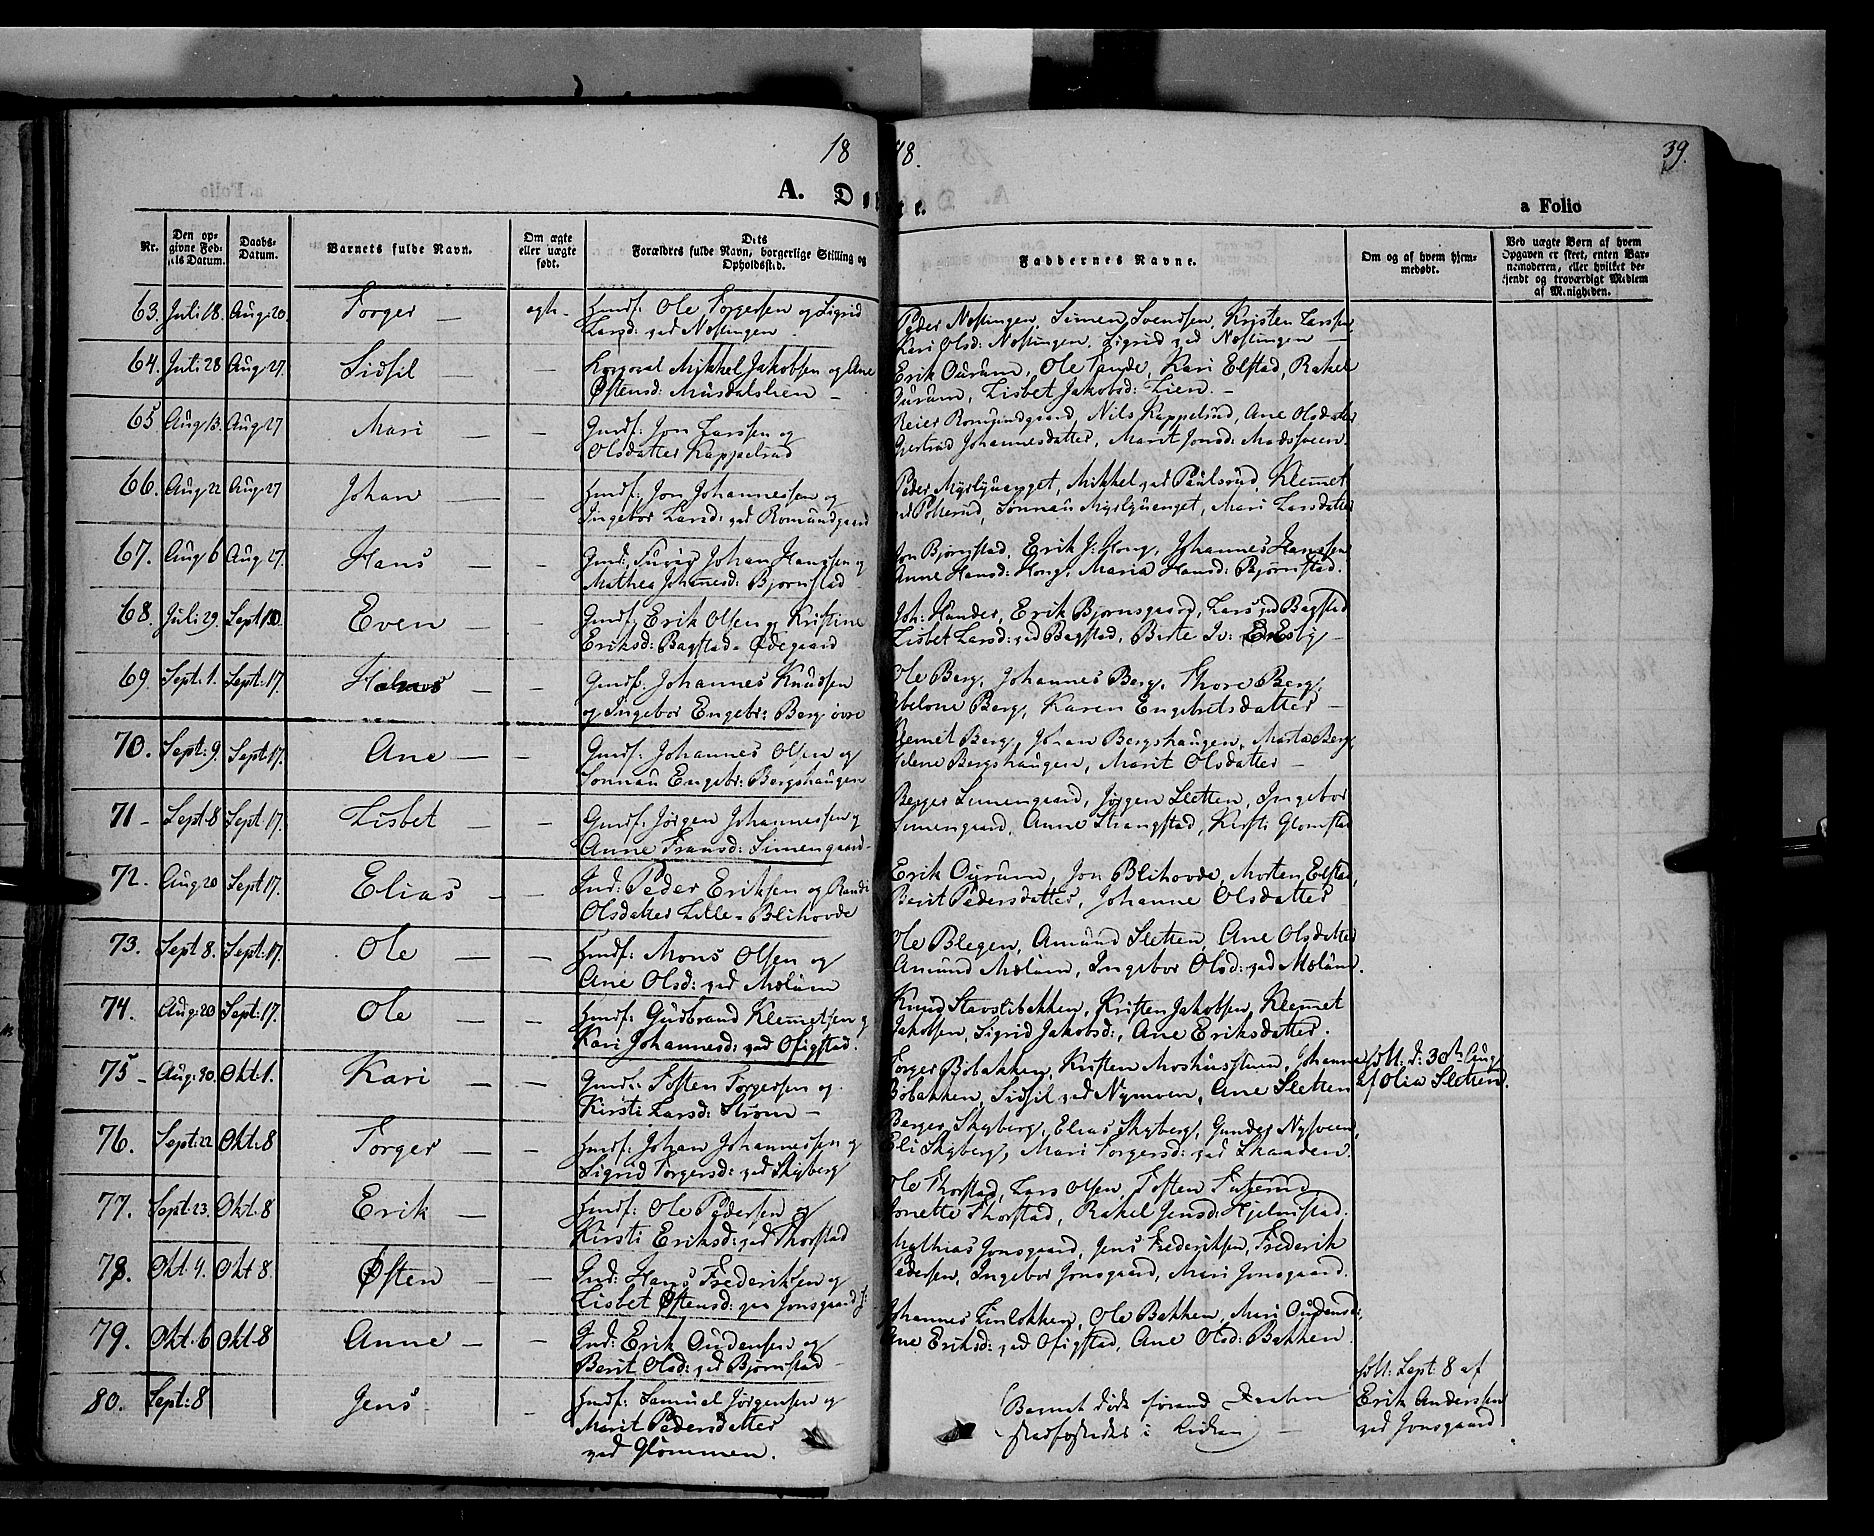 18
48.
39.
A. D
e.
a Folio
Nr.
Den opgivne Fødsels Datum.
Daabs-Datum.
Barnets fulde Navn.
Om ægte eller uægte født.
Dets Forældres fulde Navn, borgerlige Stilling og Opholdssted.
Faddernes Navne.
Om og af hvem hjemmedøbt.
Ved uægte Børn af hvem Opgaven er skeet, enten Barnemoderen, eller hvilket bekjendt og troværdigt Medlem af Menigheden.
63. Juli 18. Aug: 20. Torger — ægte. Huusf: Ole Torgersen og Sigrid
Larsd: Peder Simen Svendsen, Kristen Larssen
Kari Olsd: Sigrid
64. Juli 28 Aug: 27. Sidsil — — Mikkel Jakobsen og Ane
Østensd: Musdalslien — Erik Ourum, Ole Tande, Kari Elstad, Rakel
Ourum, Lisbet Jakobsd: Lien. —
65. Aug 13. Aug 27 Mari — — Jon Larssen og
Olsdatter Kappelrud Reier Romundgaard, Nils Kappelrud, Ane Olsdatter
Gjertrud Johannesdatter, Marit Jonsd: Madssveen.
66. Aug: 22 Aug: 27 Johan — — Huusf: Jon Johannessen og
Ingebor Larsd: Romundgaard Peder Mikkel Paulsrud, Klemet
Mari Larsdatter
67. Aug 6 Aug: 27. Hans — — Johan Hanssen og
Mathea Bjørnstad Jon Bjørnstad, Erik J: Hong, Johannes Hanssen
Anne Hansd: Hong, Maria Hansd: Bjørnstad.
68. Juli: 29. Sept 10. Even — — Erik Olsen og Kristine
Eriksd: Bagstad-Ødegaard Joh: Hunder, Erik Bjørnsgaard, Lars Bagstad
Lisbet Larsd: Bagstad,
69. Sept: 1. Sept: 17. — — Johannes Knudsen
og Ingebor Engebr: Berg øvre Ole Berg, Johannes Berg, Thore Berg,
Abelone Berg, Karen Engebretsdatter —
70. Sept: 9. Sept: 17. Ane — — Johannes Olsen og
Engebr: Bergshaugen Klemet Berg, Johan Bergshaugen, Marta Berg
Bergshaugen, Marit Olsdatter —
71 — Sept: 8 Sept: 17. Lisbet — — Jørgen Johannessen og
Anne Fransd: Simengaard — Berger Simengaard, Jørgen Sletten, Ingebor
Simengaard, Anne Strangstad, Kirsti Glomstad
72. Aug 20 Sept 17. Elias — — Ind: Peder Eriksen og Randi
Olsdatter Lille-Blihovde Erik Ourum, Jon Blihovde, Morten Elstad,
Berit Pedersdatter, Johanne Olsdatter
73. Sept 8. Sept: 17. Ole — — Huusf: Mons Olsen og
Ane Olsd: Mælum Ole Blegen, Amund Sletten, Ane Olsdatter
Amund Mælum, Ingebor Olsd: Mælum.
74. Aug: 20 Sept: 17. Ole — — Huusf: Gudbrand Klemetsen og
Kari Johannesd: Ofigstad. Knud Stavslibakken, Kristen Jakobsen, Klemet
Jakobsen, Sigrid Jakobsd:, Ane Eriksdatter.
75 — Aug: 30. Okt: 1. Kari — — Tosten Torgersen og
Kirsti Larsd: Strøm — Torger Bøbakken, Kristen Moshussveen, Johanne
Bøbakken, Sidsil Nymoen, Ane Sletten d: 30te Aug
af Olia Sletten.
76. Sept: 22 Okt: 8 Torger — — Huusf: Johan Johannessen og
Sigrid Torgersd: Skyberg Berger Skyberg, Elias Skyberg, Gunder Nysveen,
Eli Skyberg, Mari Torgersd: Skaaden.
77. Sept: 23. Okt: 8 Erik — Huusf: Ole Pedersen og
Kirsti Eriksd: Thorstad Ole Thorstad, Lars Olsen, Tosten
Jonette Thorstad, Rakel Jensd: Hjelmstad.
78. Okt: 4. Okt 8. Østen — — Ind: Hans Frederiksen og
Lisbet Østensd: Jonsgaard Mathias Jonsgaard, Jens Frederiksen, Frederik
Pedersen, Ingebor Jonsgaard, Mari Jonsgaard.
79. Okt: 6 Okt: 8 Anne — — Ind: Erik Oudensen og
Berit Olsd: Bjørnstad — Johannes Linløkken, Ole Bakken, Mari Oudensd:
Ane Eriksd: Ofigstad, Ane Olsd: Bakken.
80. Sept: 8 Jens Huusf: Samuel Jørgensen og
Marit Pedersdatter
Glommen. Barnet døde førend Daaben
stadfæstedes i Kirken — Sept: 8 af
Erik Anderssen
Jonsgaard